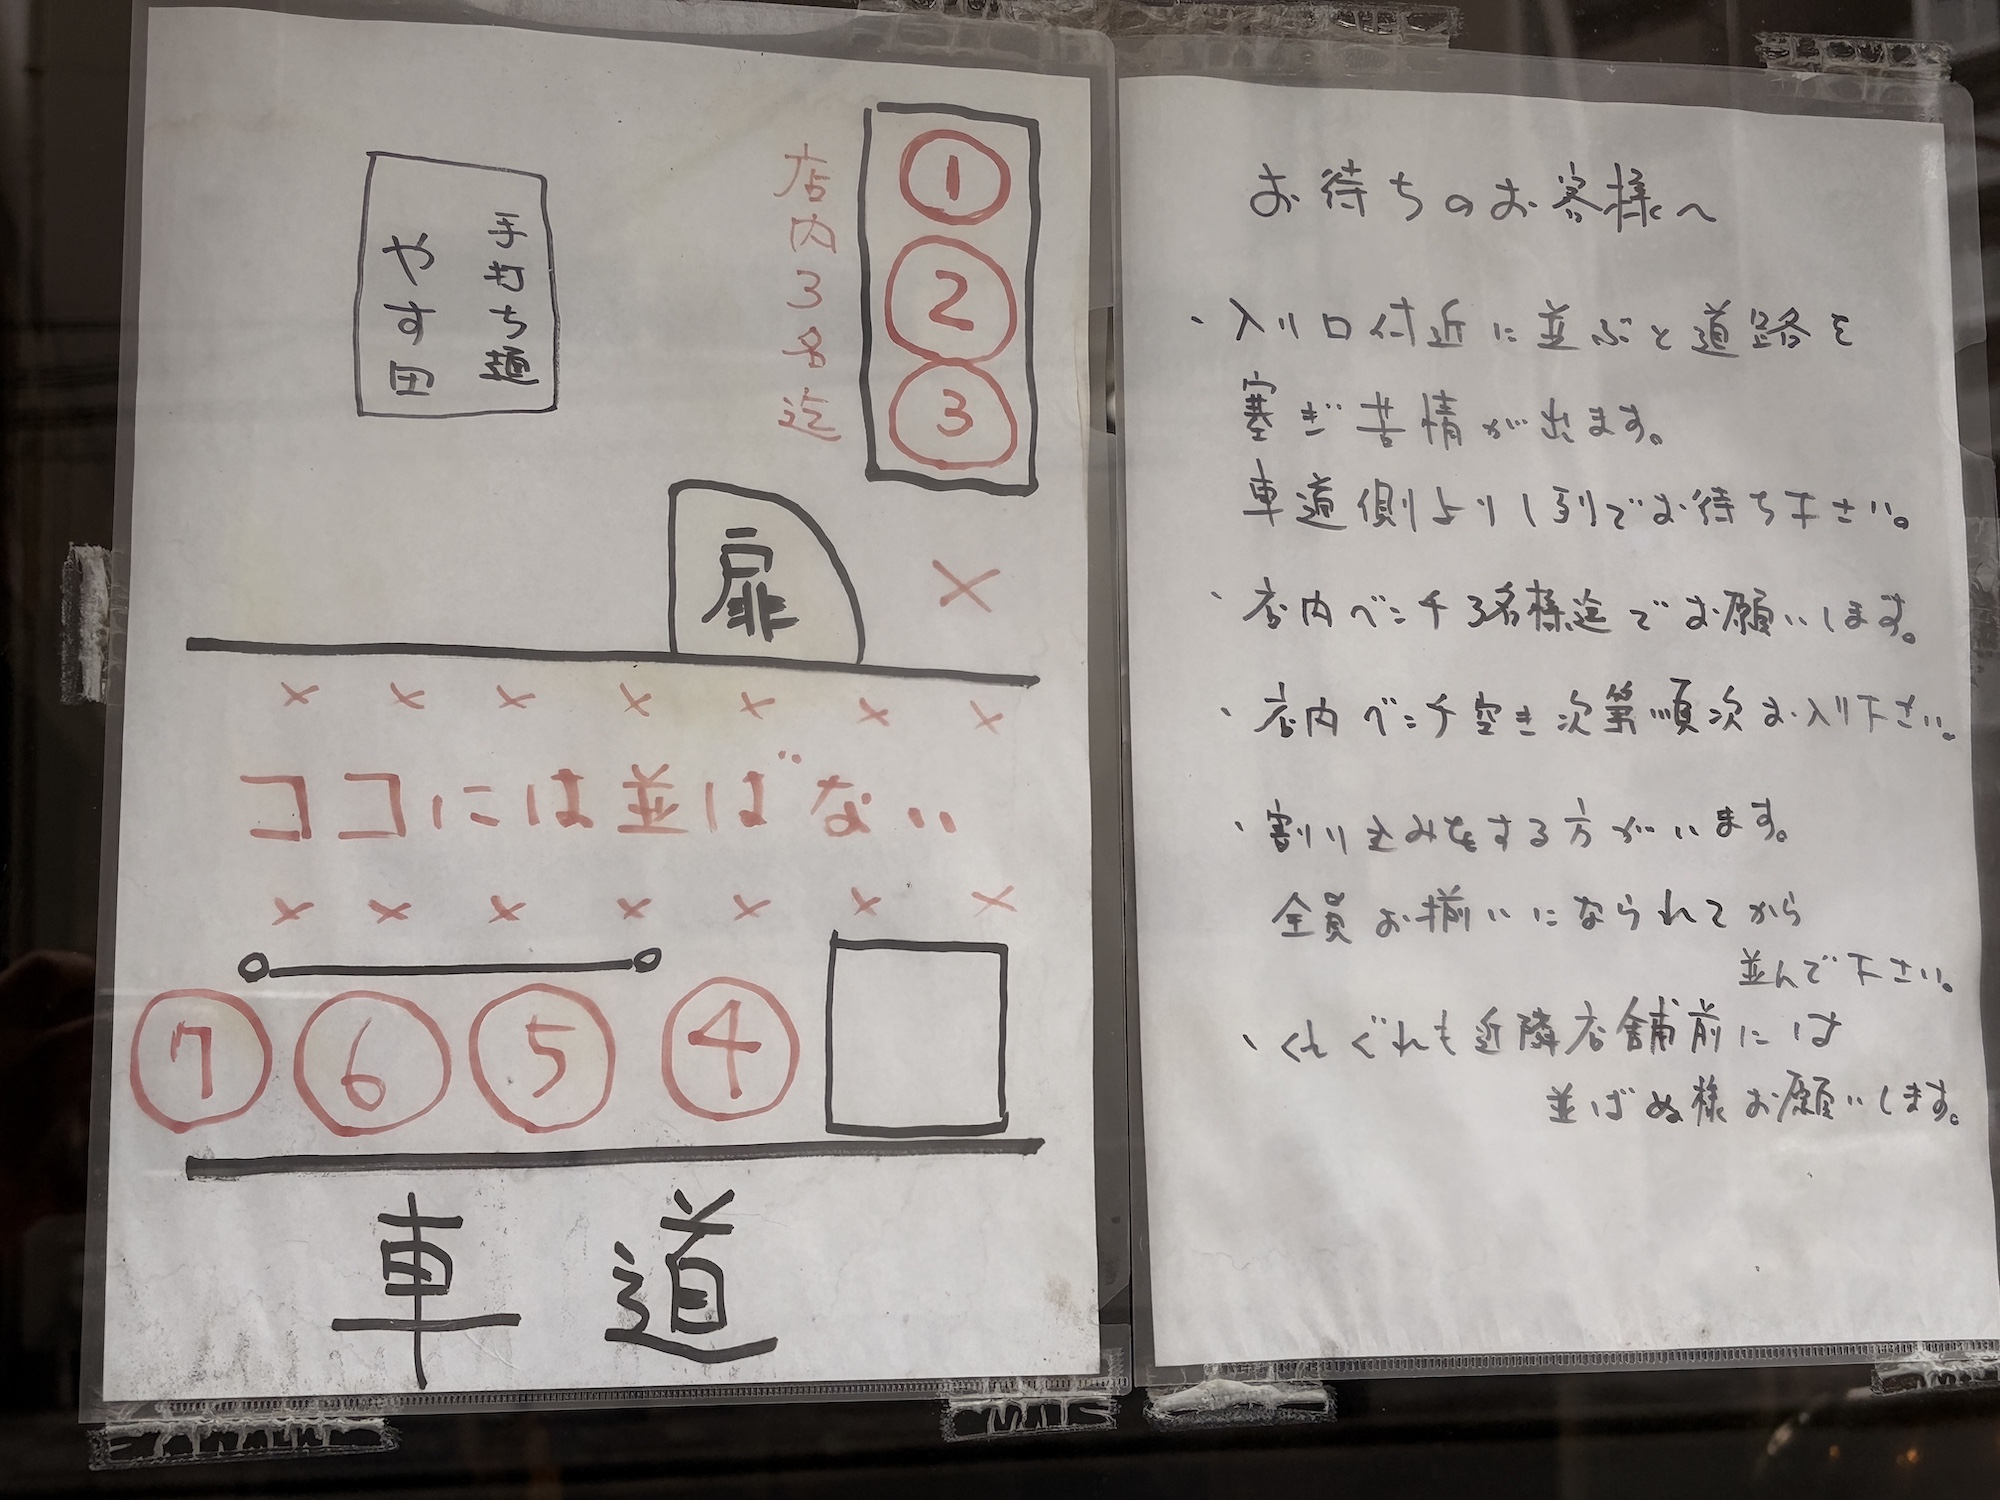 手打ち麺
やす田
店内3名迄
1
2
3
扉
×
× × × × × × ×
ココには並ばない
× × × × × × ×
7 6 5 4
車道
お待ちのお客様へ
・入り口付近に並ぶと道路を
塞ぎ苦情が出ます。
車道側より1列でお待ち下さい。
・店内ベンチ3名様迄でお願いします。
・店内ベンチ空き次第順次お入り下さい。
・割り込みをする方がいます。
全員お揃いになられてから
並んで下さい。
・くれぐれも近隣店舗前には
並ばぬ様お願いします。